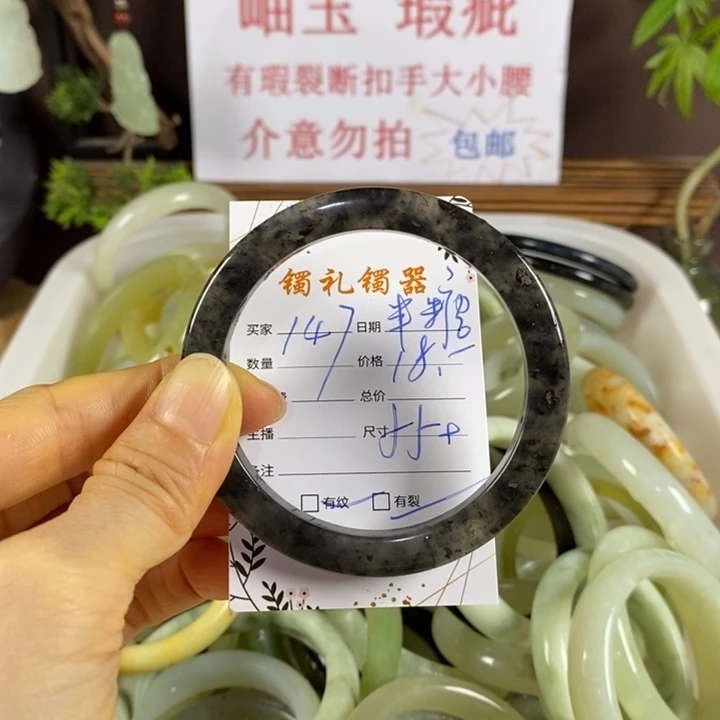 岫玉 瑕疵
有瑕裂断扣手大小腰
介意勿拍 包邮
镯礼镯器
买家 147 日期 半糖
数量 价格 18.-
总价
主播 尺寸 55+
备注
□有纹 □有裂